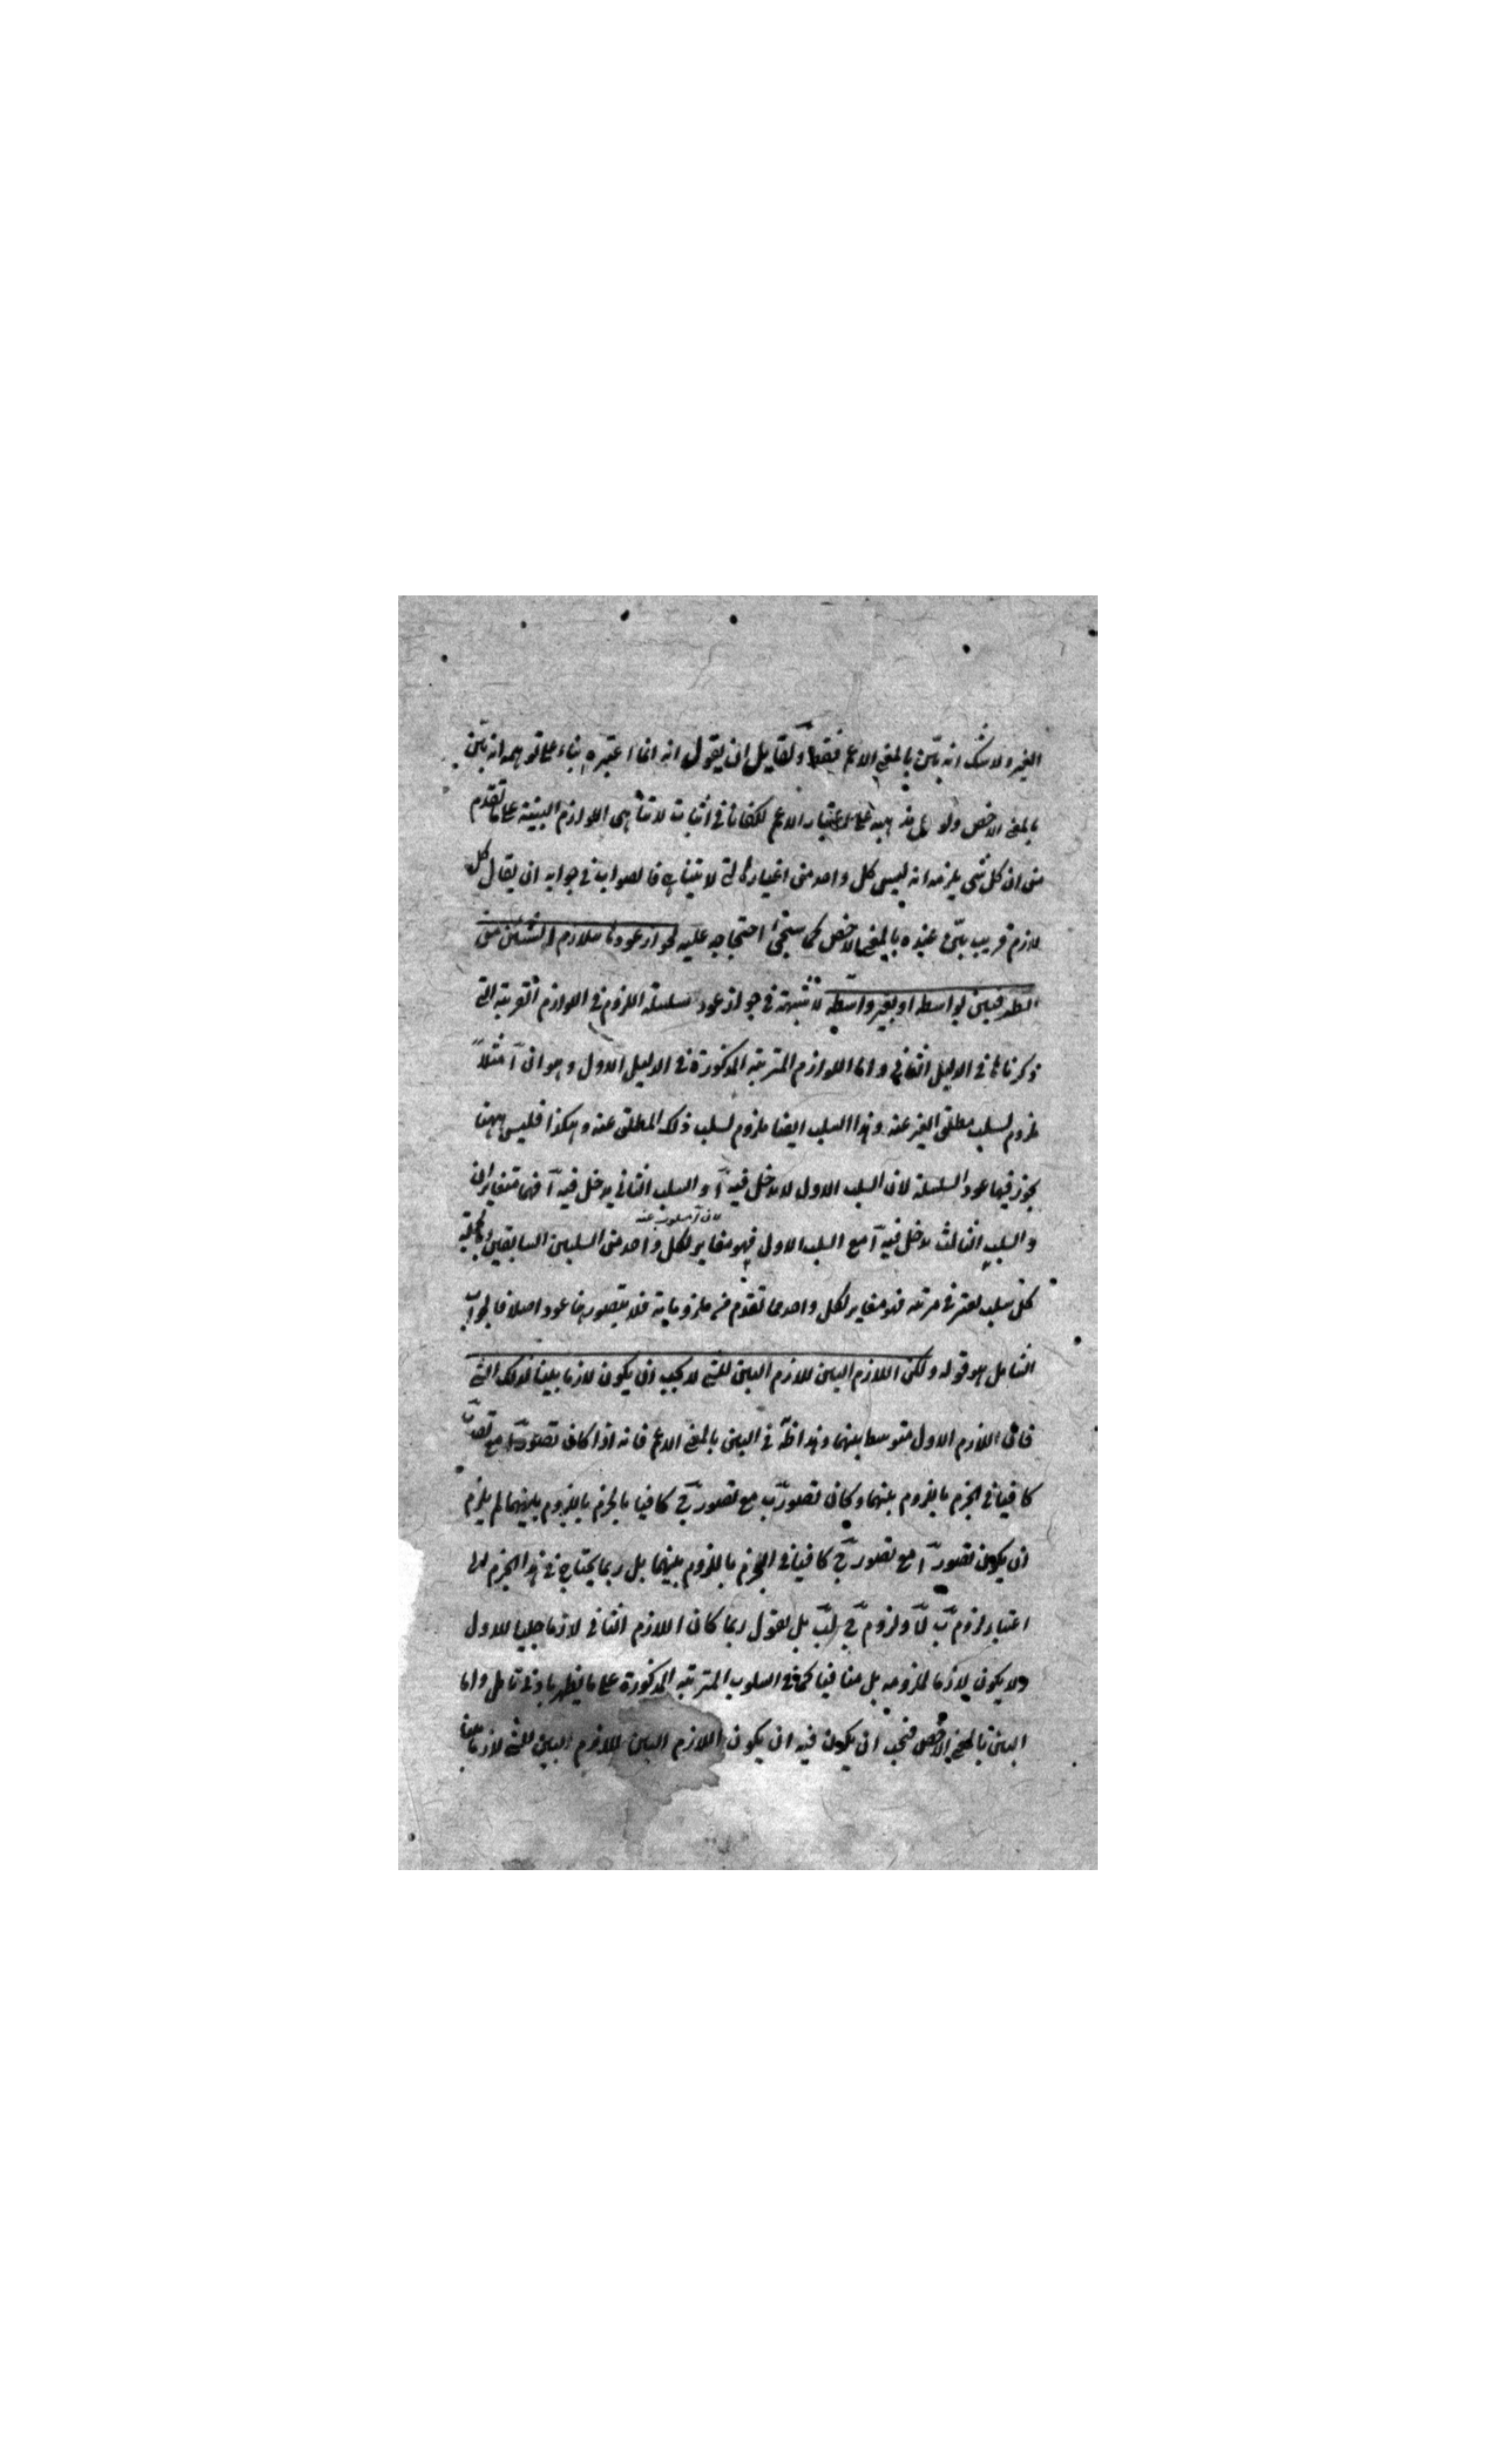 الغير ولا شك انه بيّن بالمعنى الاعم فقط ولقايل ان يقول انه انما اعتبره بناء على توهمه انه بيّن
بالمعنى الاخص ولو على اعتبار الاعم لكفانا فى اثبات لا تناهى اللوازم البينة على ما تقدم
من ان كل شى يلزمه انه ليس كل واحد من اغياره التى لا تتناهى فالصواب فى جوابه ان يقال كل
لازم قريب بيّن عنده بالمعنى الاخص كما سيجئ احتجاجه عليه لجواز عودنا متلازم الشيئين من
الطرفين بواسطه او بغير واسطه لا شبهة فى جواز عود سلسلة اللزوم فى اللوازم القريبة التى
ذكرناها فى الدليل الثانى واما اللوازم المترتبة المذكورة فى الدليل الاول وهو ان آ مثلاً
ملزوم لسلب مطلق الغير عنه وهذا السلب ايضا ملزوم لسلب ذلك المطلق عنه وهكذا فليس مهنا
يجوز فيها عود السلسلة لان السلب الاول لا يدخل فيه آ والسلب الثانى يدخل فيه آ فهما متغايران
لان آ مسلوب عنه
والسلب الثالث يدخل فيه آ مع السلب الاول فهو مغاير لكل واحد من السلبين السابقين وبالجملة
كل سلب يعتبر فى مرتبة فهو مغاير لكل واحد مما تقدم من ملزوماته فلا يتصور هنا عود اصلا فالجواب
الشامل هو قوله ولكن اللازم البين للازم البين للشئ لا يجب ان يكون لازما بينا لذلك الشئ
فان اللازم الاول متوسط بينهما وهذا ظ فى البين بالمعنى الاعم فانه اذا كان تصور آ مع تصور ب
كافيا فى الجزم باللزوم بينهما وكان تصور ب مع تصور ج كافيا بالجزم باللزوم بينهما لم يلزم
ان يكون تصور آ مع تصور ج كافيا فى الجزم باللزوم بينهما بل ربما يحتاج فى هذا الجزم الى
اعتبار لزوم ب لآ ولزوم ج لب بل نقول ربما كان اللازم الثانى لازما جليا للاول
ولا يكون لازما لملزومه بل منافيا كما فى السلوب المترتبة المذكورة على ما يظهر بادنى تامل واما
البين بالمعنى الاخص فيجب ان يكون فيه ان يكون اللازم البين للازم البين للشئ لازما بينا